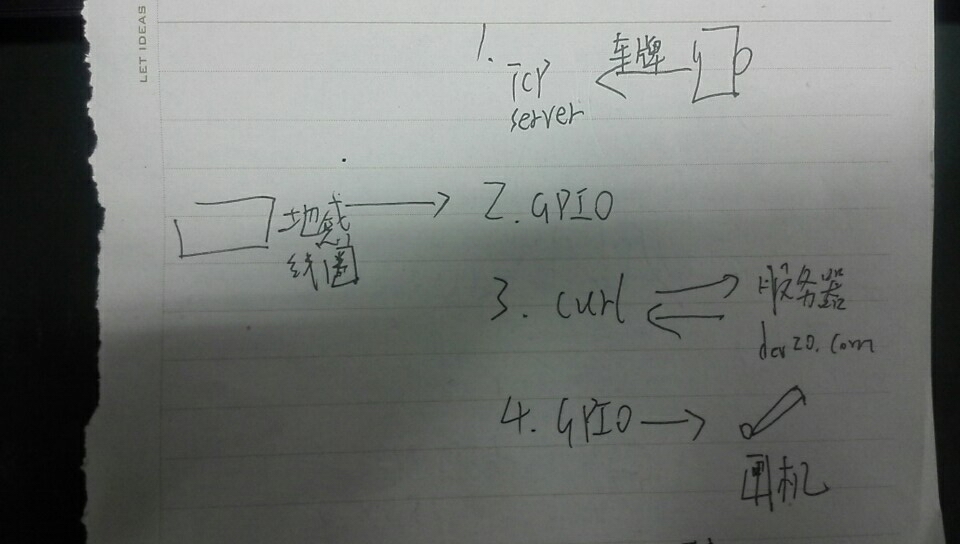 LET IDEAS
1.
TCP
server
车牌
地感
线圈
2. GPIO
3. curl
服务器
dev20.com
4. GPIO
闸机